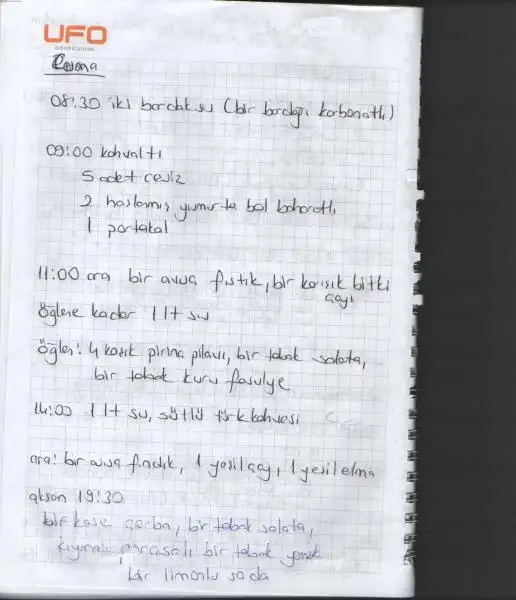 UFO
08:30 iki bardak su (bir bardağı karbonatlı)
09:00 kahvaltı
5 adet ceviz
2 haşlanmış yumurta bol baharatlı
1 portakal
11:00 ara bir avuç fıstık, bir karışık bitki
çayı
öğlene kadar 1 lt su
öğlen: 4 kaşık pirinç pilavı, bir tabak salata,
bir tabak kuru fasulye
14:00 1 lt su, sütlü türk kahvesi
ara: bir avuç fındık, 1 yeşil çay, 1 yeşil elma
akşam 19:30
bir kase çorba, bir tabak salata,
kıymalı pırasalı bir tabak yemek
bir limonlu soda